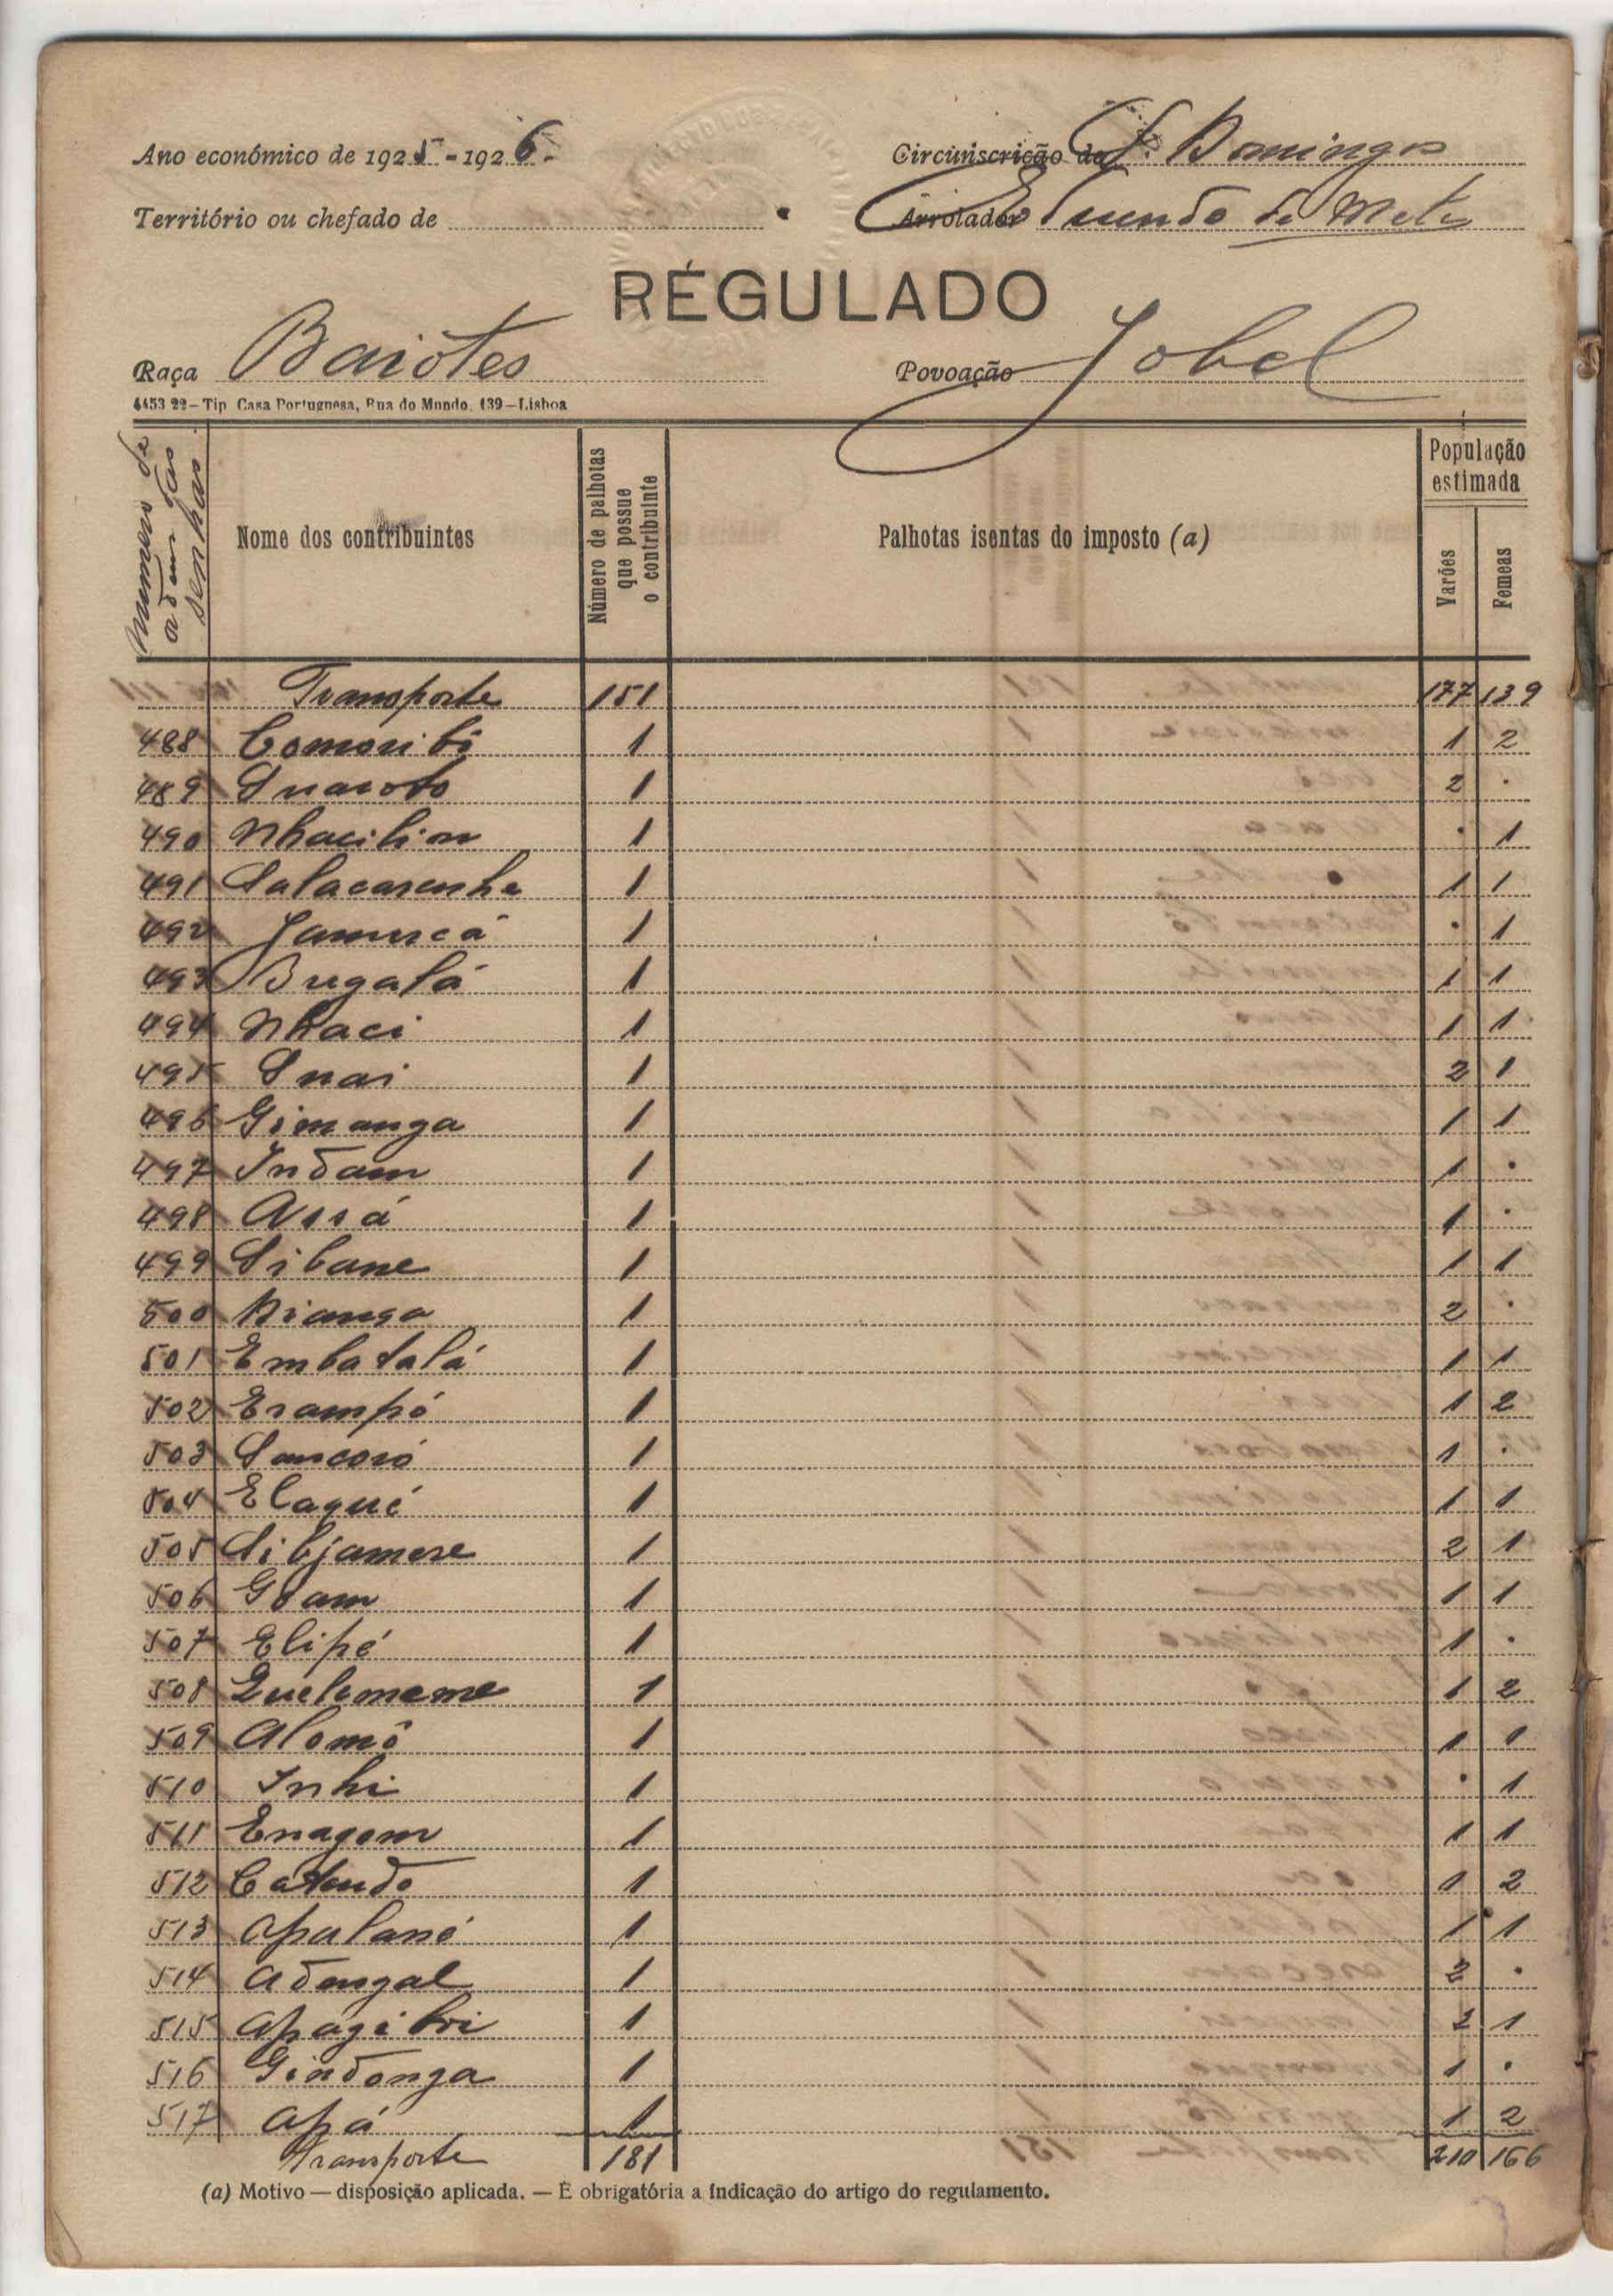 Ano económico de 1925-1926.
Circunscrição de S. Domingos
Território ou chefado de
Arrolador
RÉGULADO
Raça Baiotes
Povoação Jobel
4453 22—Tip Casa Portuguesa, Rua do Mundo, 139—Lisboa
Numero de
ordem das
senhas
Nome dos contribuintes
Número de palhotas
que possue
o contribuinte
Palhotas isentas do imposto (a)
População
estimada
Varões
Femeas
Transporte 151 177 139
488 Comoribi 1 1 2
489 1 2 .
490 Nhacilim 1 . 1
491 1 1 1
492 Jamucá 1 . 1
493 Bugalá 1 1 1
494 Nhaci 1 1 1
495 Snai 1 2 1
496 Gimanga 1 1 1
497 Indam 1 1 .
498 Assá 1 1 .
499 Sibane 1 1 1
500 Biansa 1 2 .
501 Embatalá 1 1 1
502 Erampó 1 1 2
503 Sancoró 1 1 .
504 Elaqué 1 1 1
505 1 2 1
506 Goam 1 1 1
507 Elipé 1 1 .
508 Quelememe 1 1 2
509 Alomô 1 1 1
510 Inhi 1 . 1
511 Enagom 1 1 1
512 Catendo 1 1 2
513 Apalané 1 1 1
514 Adengal 1 2 .
515 1 2 1
516 Gindonga 1 1 .
517 Apá 1 1 2
Transporte 181 210 166
(a) Motivo — disposição aplicada. — É obrigatória a indicação do artigo do regulamento.